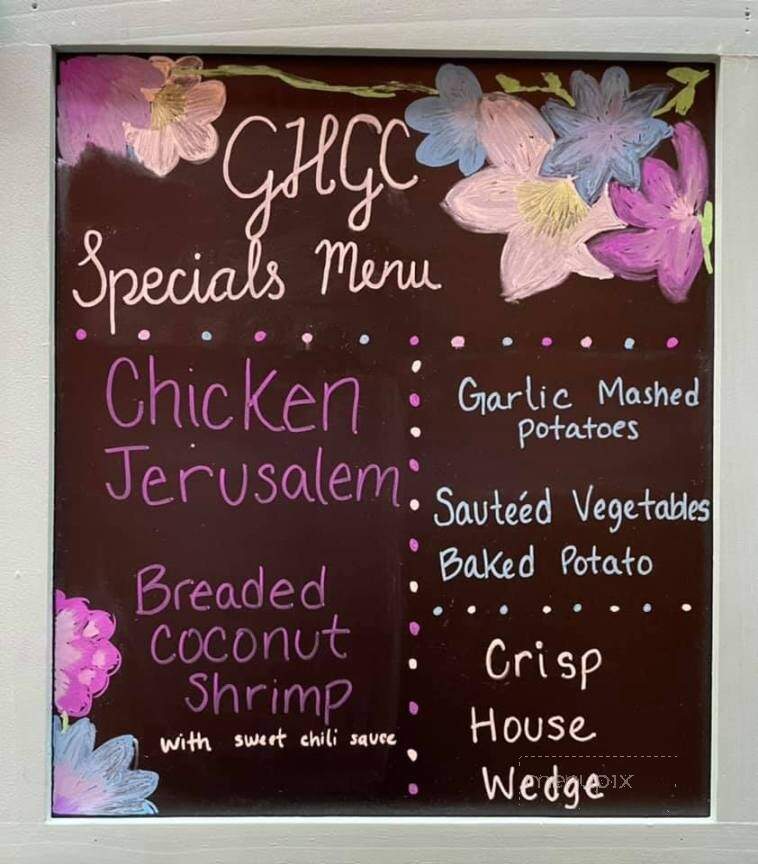 GHGC
Specials Menu
Chicken
Jerusalem
Breaded
coconut
Shrimp
with sweet chili sauce
Garlic Mashed
potatoes
Sauteéd Vegetables
Baked Potato
Crisp
House
Wedge
menupix